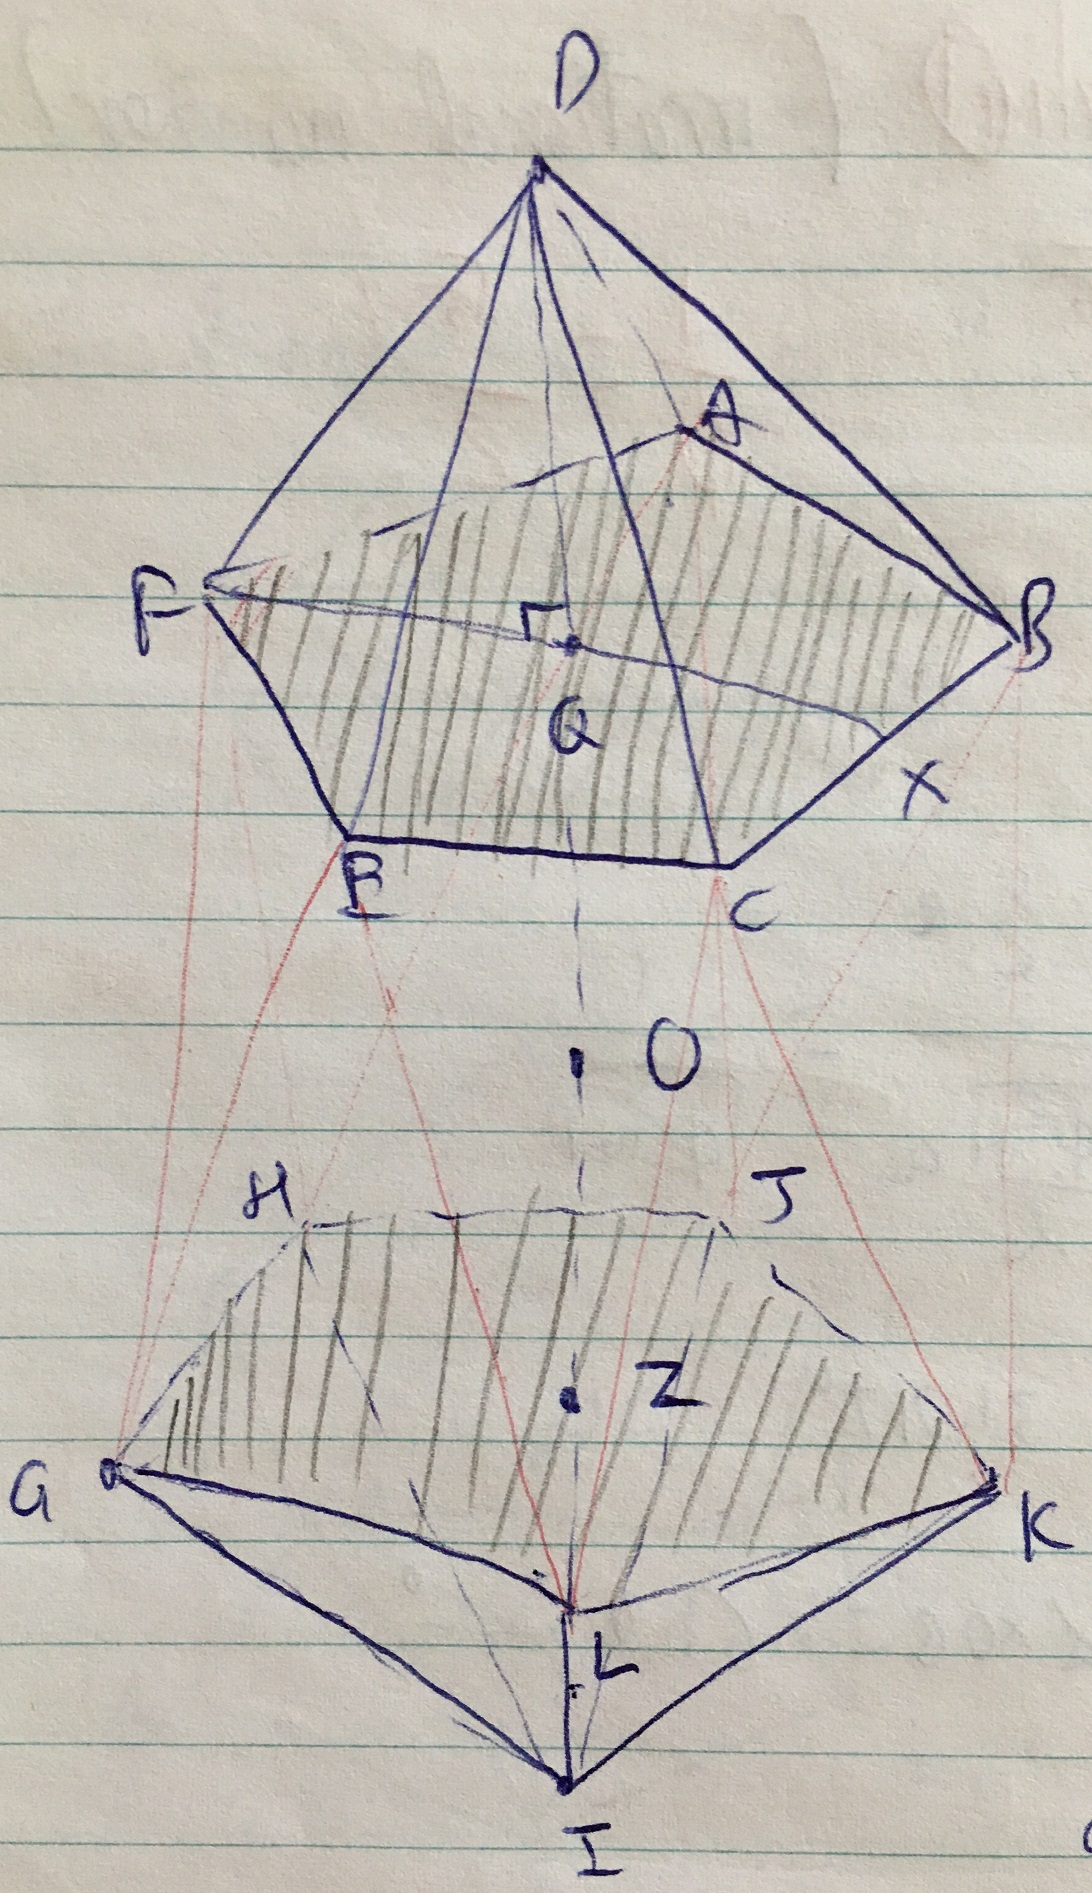 D
A
F
B
Q
X
E
C
O
H
J
Z
G
K
L
I